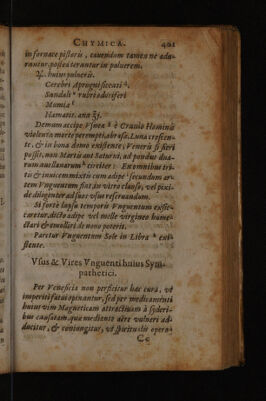 CHYMICA. 401
in fornace pistoris, cauendum tamen ne adu-
rantur, postea terantur in puluerem.
♃. huius pulueris.
Cerebri Aprugni siccati
Sandali rubri odoriferi
Mumiæ
Hæmatit. ana ℥j.
Demum accipe Vsneæ è Cranio Hominis
violenta morte perempti, abrasæ, Luna crescen-
te, & in bona domo existente, Veneris si fieri
possit, non Martis aut Saturni, ad pondus dua-
rum auellanarum circiter: Ex omnibus tri-
tis & inuicem mixtis cum adipe secundum ar-
tem Vnguentum fiat, in vitro clauso, vel pixi-
de diligenter ad suos vsus reseruandum.
Si forte longo temporis Vnguentum exsic-
caretur, dicto adipe vel melle virgineo
& emolliri de nono poterit.
Paretur Vnguentum Sole in Libra exi-
stente.
Vsus & Vires Vnguenti huius Sym-
pathetici.
Per Veneficia non perficitur hæc cura, vt
imperiti fatui opinantur, sed per medicamenti
huius vim Magneticam attractiuam à syderi-
bus causatam, quæ mediante aëre vulneri ad-
ducitur, & coniungitur, vt spiritualis opera-
Cc